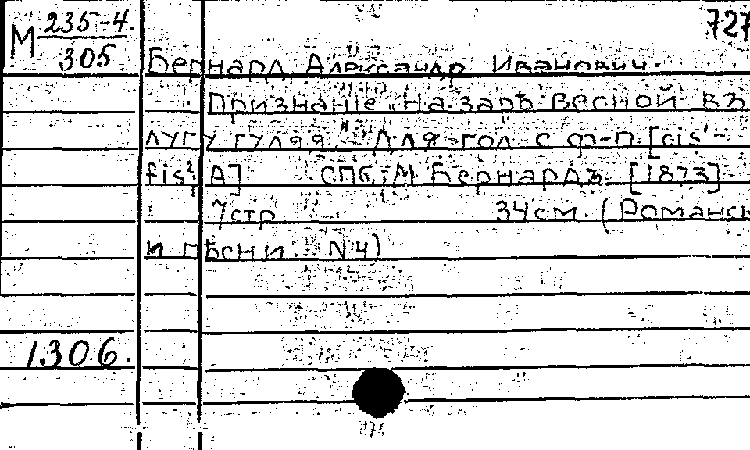 М 235-4. 727
305
Бернард, Александр Иванович.
Признанiе. "На зарѣ весной въ
лугу гуляя." Для гол. с ф-п. [cis¹-
fis², A] СПб, М. Бернардъ. [1873]
7 стр. 34 см. (Романсы
и пѣсни. N 4)
1.306.